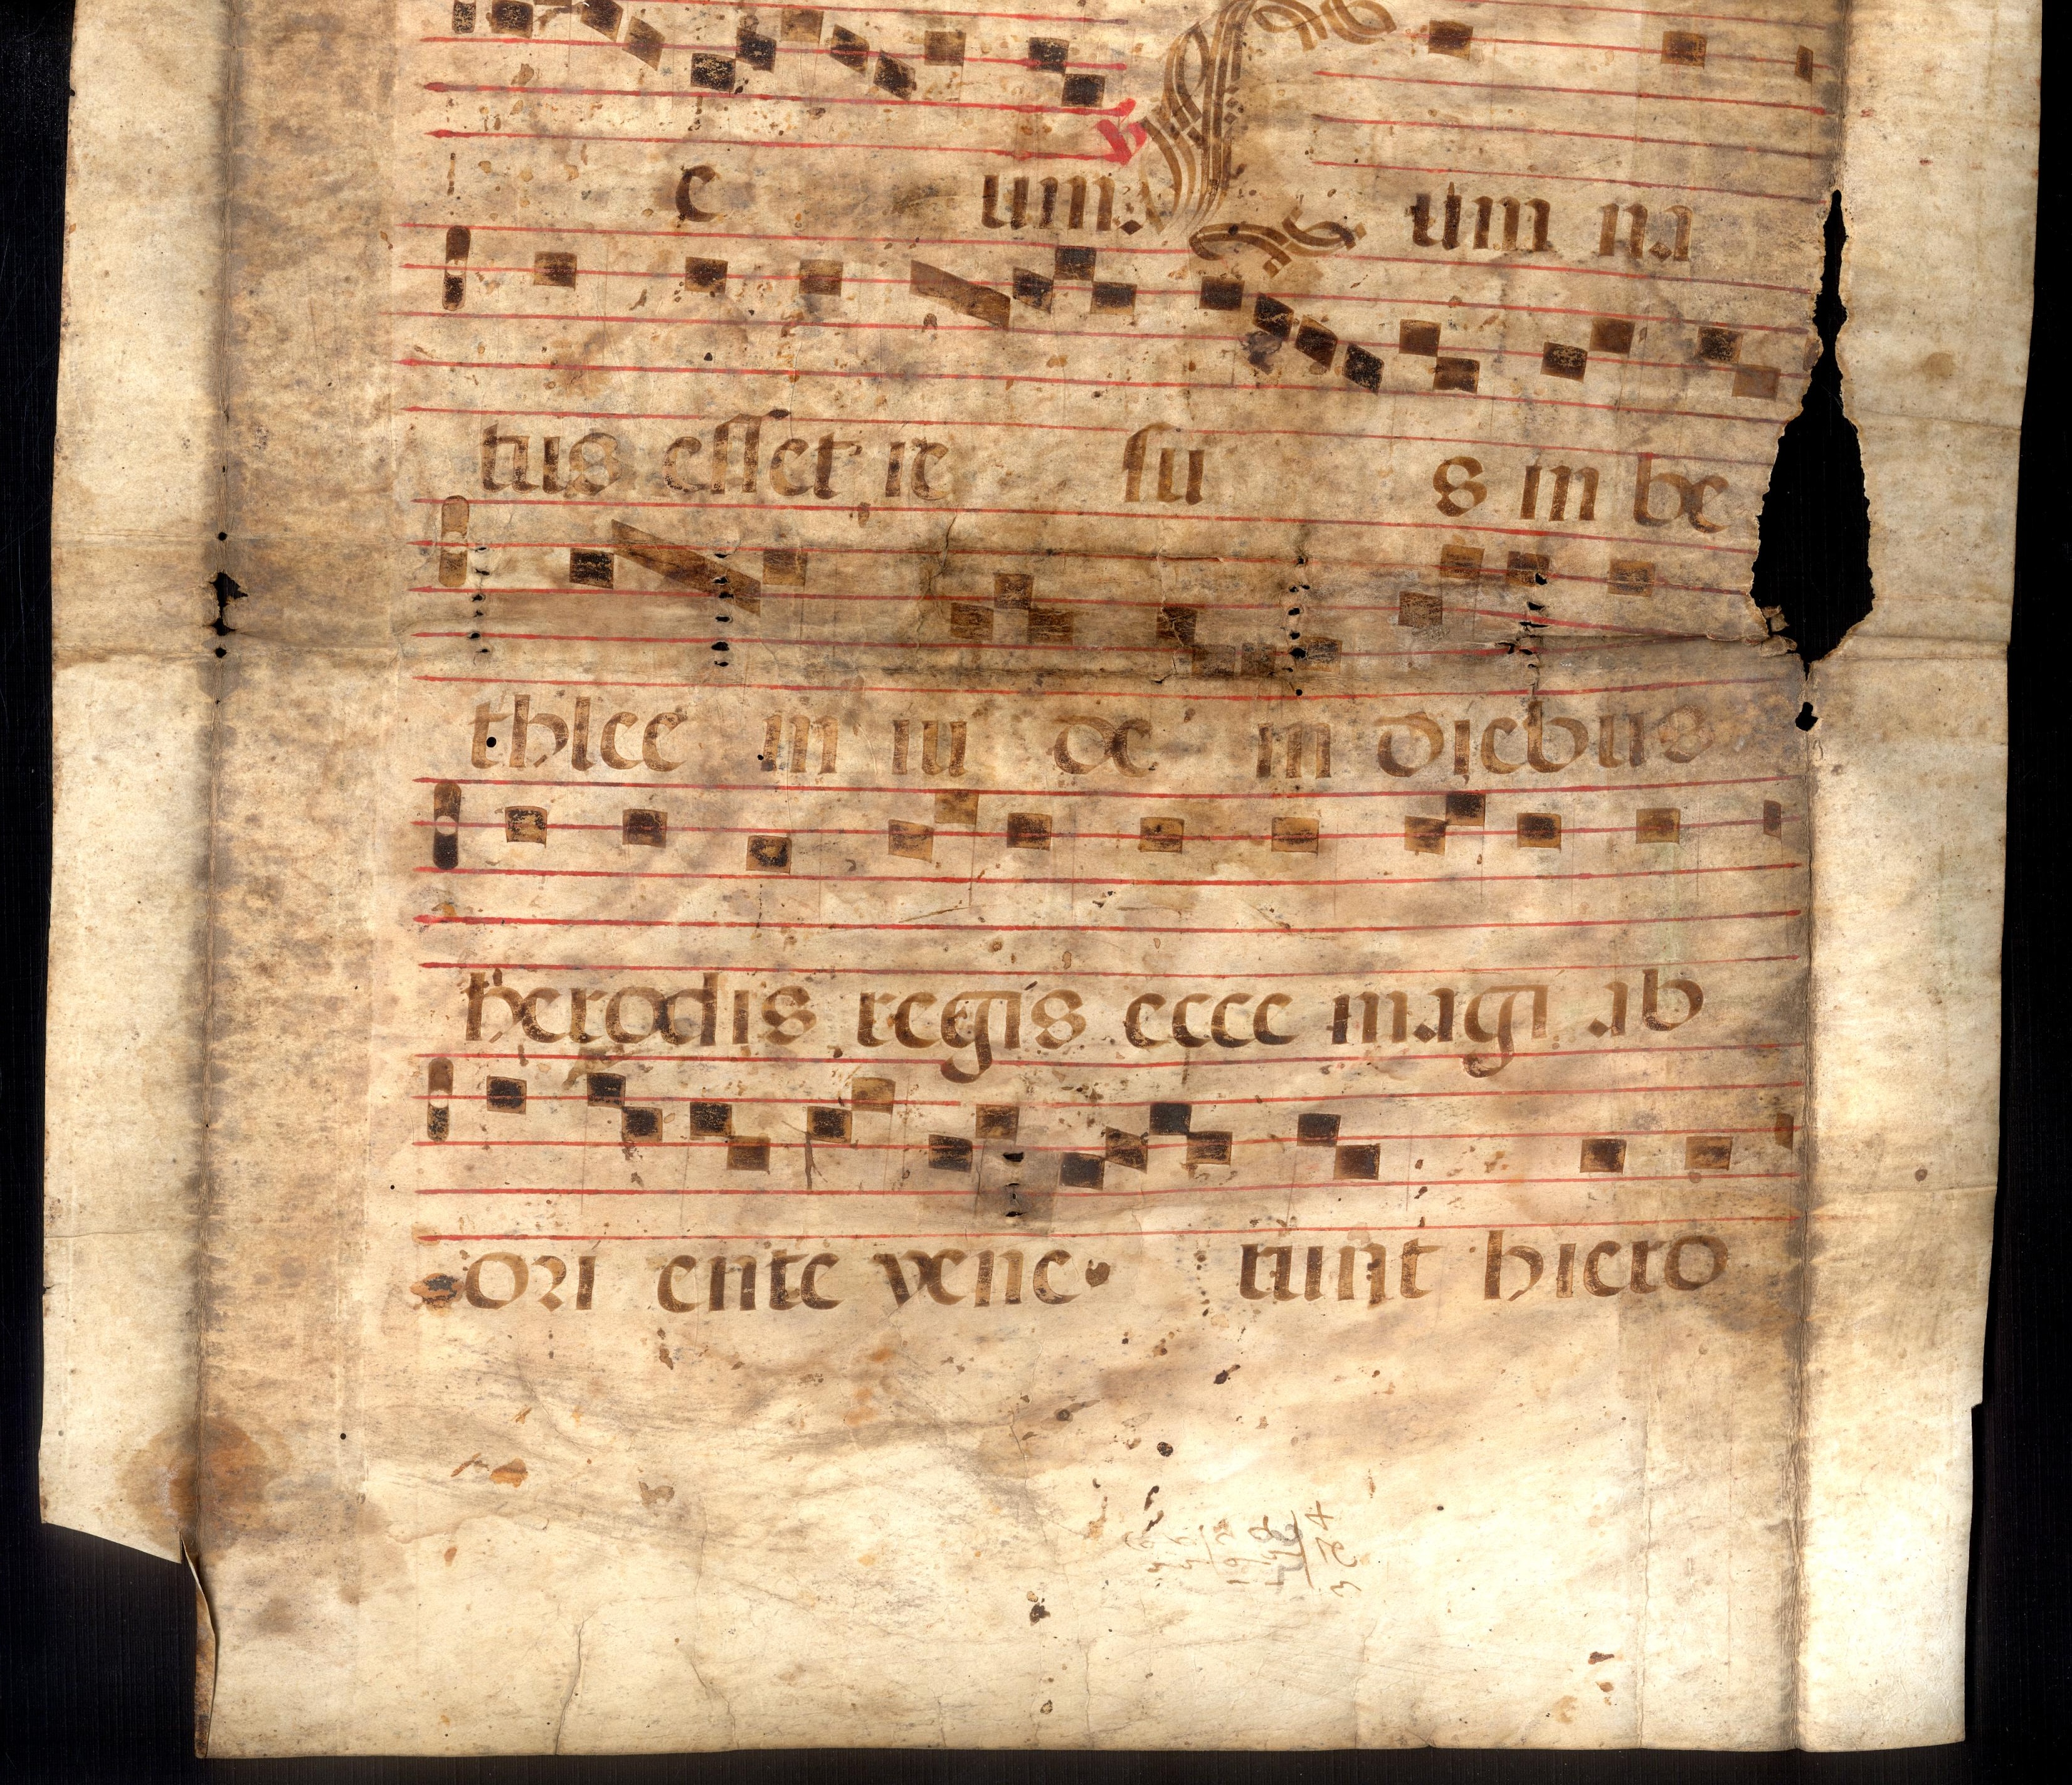 e um. Cum na
tus esset ie su s in be
thlee m iu de in diebus
herodis regis ecce magi ab
ori ente vene runt hiero